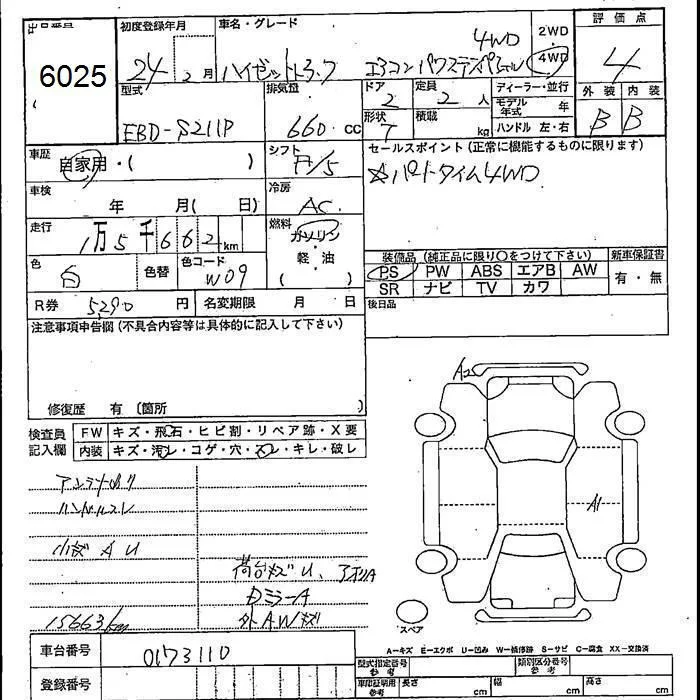 出品番号 6025
初度登録年月 24年 2月
車名・グレード ハイゼットトラック エアコン パワステスペシャル 4WD
2WD 4WD
評価点 4
型式 EBD-S211P
排気量 660 cc
ドア 2
形状 T
定員 2人
積載 kg
ディーラー・並行
モデル年式 年
ハンドル 左・右
外装 B 内装 B
車歴 自家用・( )
シフト F/5
セールスポイント (正常に機能するものに限ります)
☆パートタイム4WD
車検 年 月( 日)
冷房 AC
走行 1万5千662km
燃料 ガソリン 軽・油 ( )
色 白
色替
色コード W09
装備品 (純正品に限り○をつけて下さい)
新車保証書
PS PW ABS エアB AW
有・無
SR ナビ TV カワ
R券 5290円
名変期限 月 日
後日品
注意事項申告欄 (不具合内容等は具体的に記入して下さい)
修復歴 有 〔箇所 )
検査員記入欄
FW キズ・飛石・ヒビ割・リペア跡・X要
内装 キズ・汚レ・コゲ・穴・スレ・キレ・破レ
ハンドルスレ
小キズ A U
荷台キズU、アオリA
DミラーA
外AWキズ
15663km
A2
A1
スペア
A-キズ E-エクボ U-凹み W-補修跡 S-サビ C-腐食 XX-交換済
車台番号 0173110
登録番号
型式指定番号 参考
類別区分番号 参考
車庫証明用 参考 長さ cm 幅 cm 高さ cm